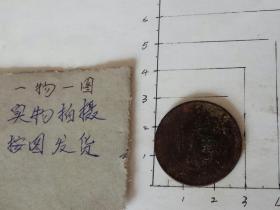 一物一图
实物拍摄
按图发货
6
5
4
3
2
1
1 2 3